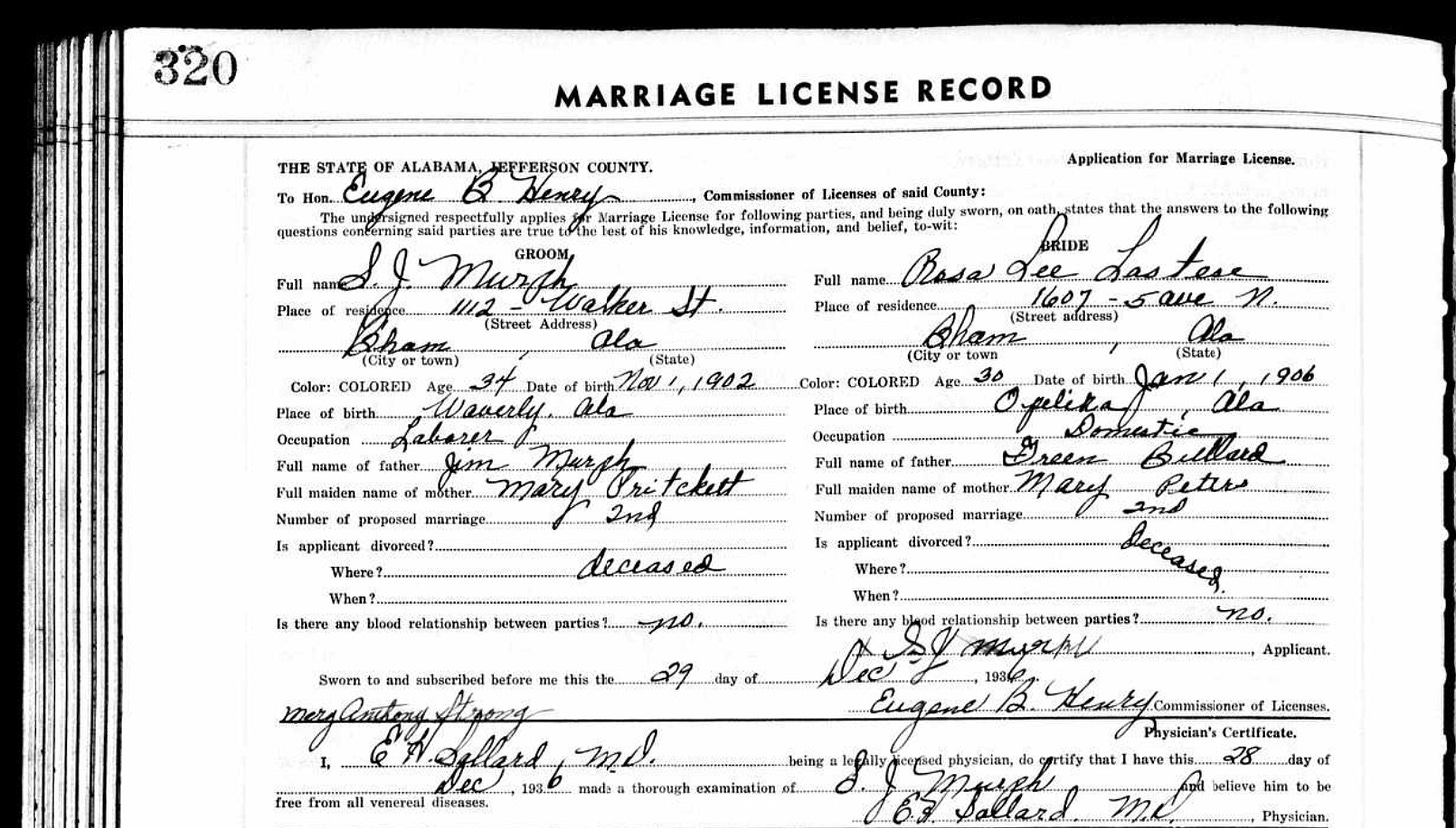 320
MARRIAGE LICENSE RECORD
THE STATE OF ALABAMA, JEFFERSON COUNTY.
Application for Marriage License.
To Hon. Eugene B Henry, Commissioner of Licenses of said County:
The undersigned respectfully applies for Marriage License for following parties, and being duly sworn, on oath, states that the answers to the following
questions concerning said parties are true to the best of his knowledge, information, and belief, to-wit:
GROOM
Full name S. J. Murph
Place of residence 1112 - Walker St.
(Street Address)
Bham, Ala
(City or town) (State)
Color: COLORED Age 34 Date of birth Nov 1, 1902
Place of birth Waverly, Ala
Occupation Laborer
Full name of father Jim Murph
Full maiden name of mother Mary Pritchett
Number of proposed marriage 2nd
Is applicant divorced?
Where? deceased
When?
Is there any blood relationship between parties? no.
BRIDE
Full name Rosa Lee
Place of residence 1607 - 5 ave N.
(Street address)
Bham, Ala
(City or town (State)
Color: COLORED Age 30 Date of birth Jan 1, 1906
Place of birth Opelika, Ala
Occupation Domestic
Full name of father Green
Full maiden name of mother Mary Peters
Number of proposed marriage 2nd
Is applicant divorced? deceased.
Where?
When?
Is there any blood relationship between parties? no.
x S J Murph, Applicant.
Sworn to and subscribed before me this the 29 day of Dec, 1936.
Mary Anthony Strong
Eugene B. Henry Commissioner of Licenses.
Physician's Certificate.
I, E H. M.D. being a legally licensed physician, do certify that I have this 28 day of
Dec, 1936 made a thorough examination of S. J. Murph and believe him to be
free from all venereal diseases.
E.H. M.D., Physician.